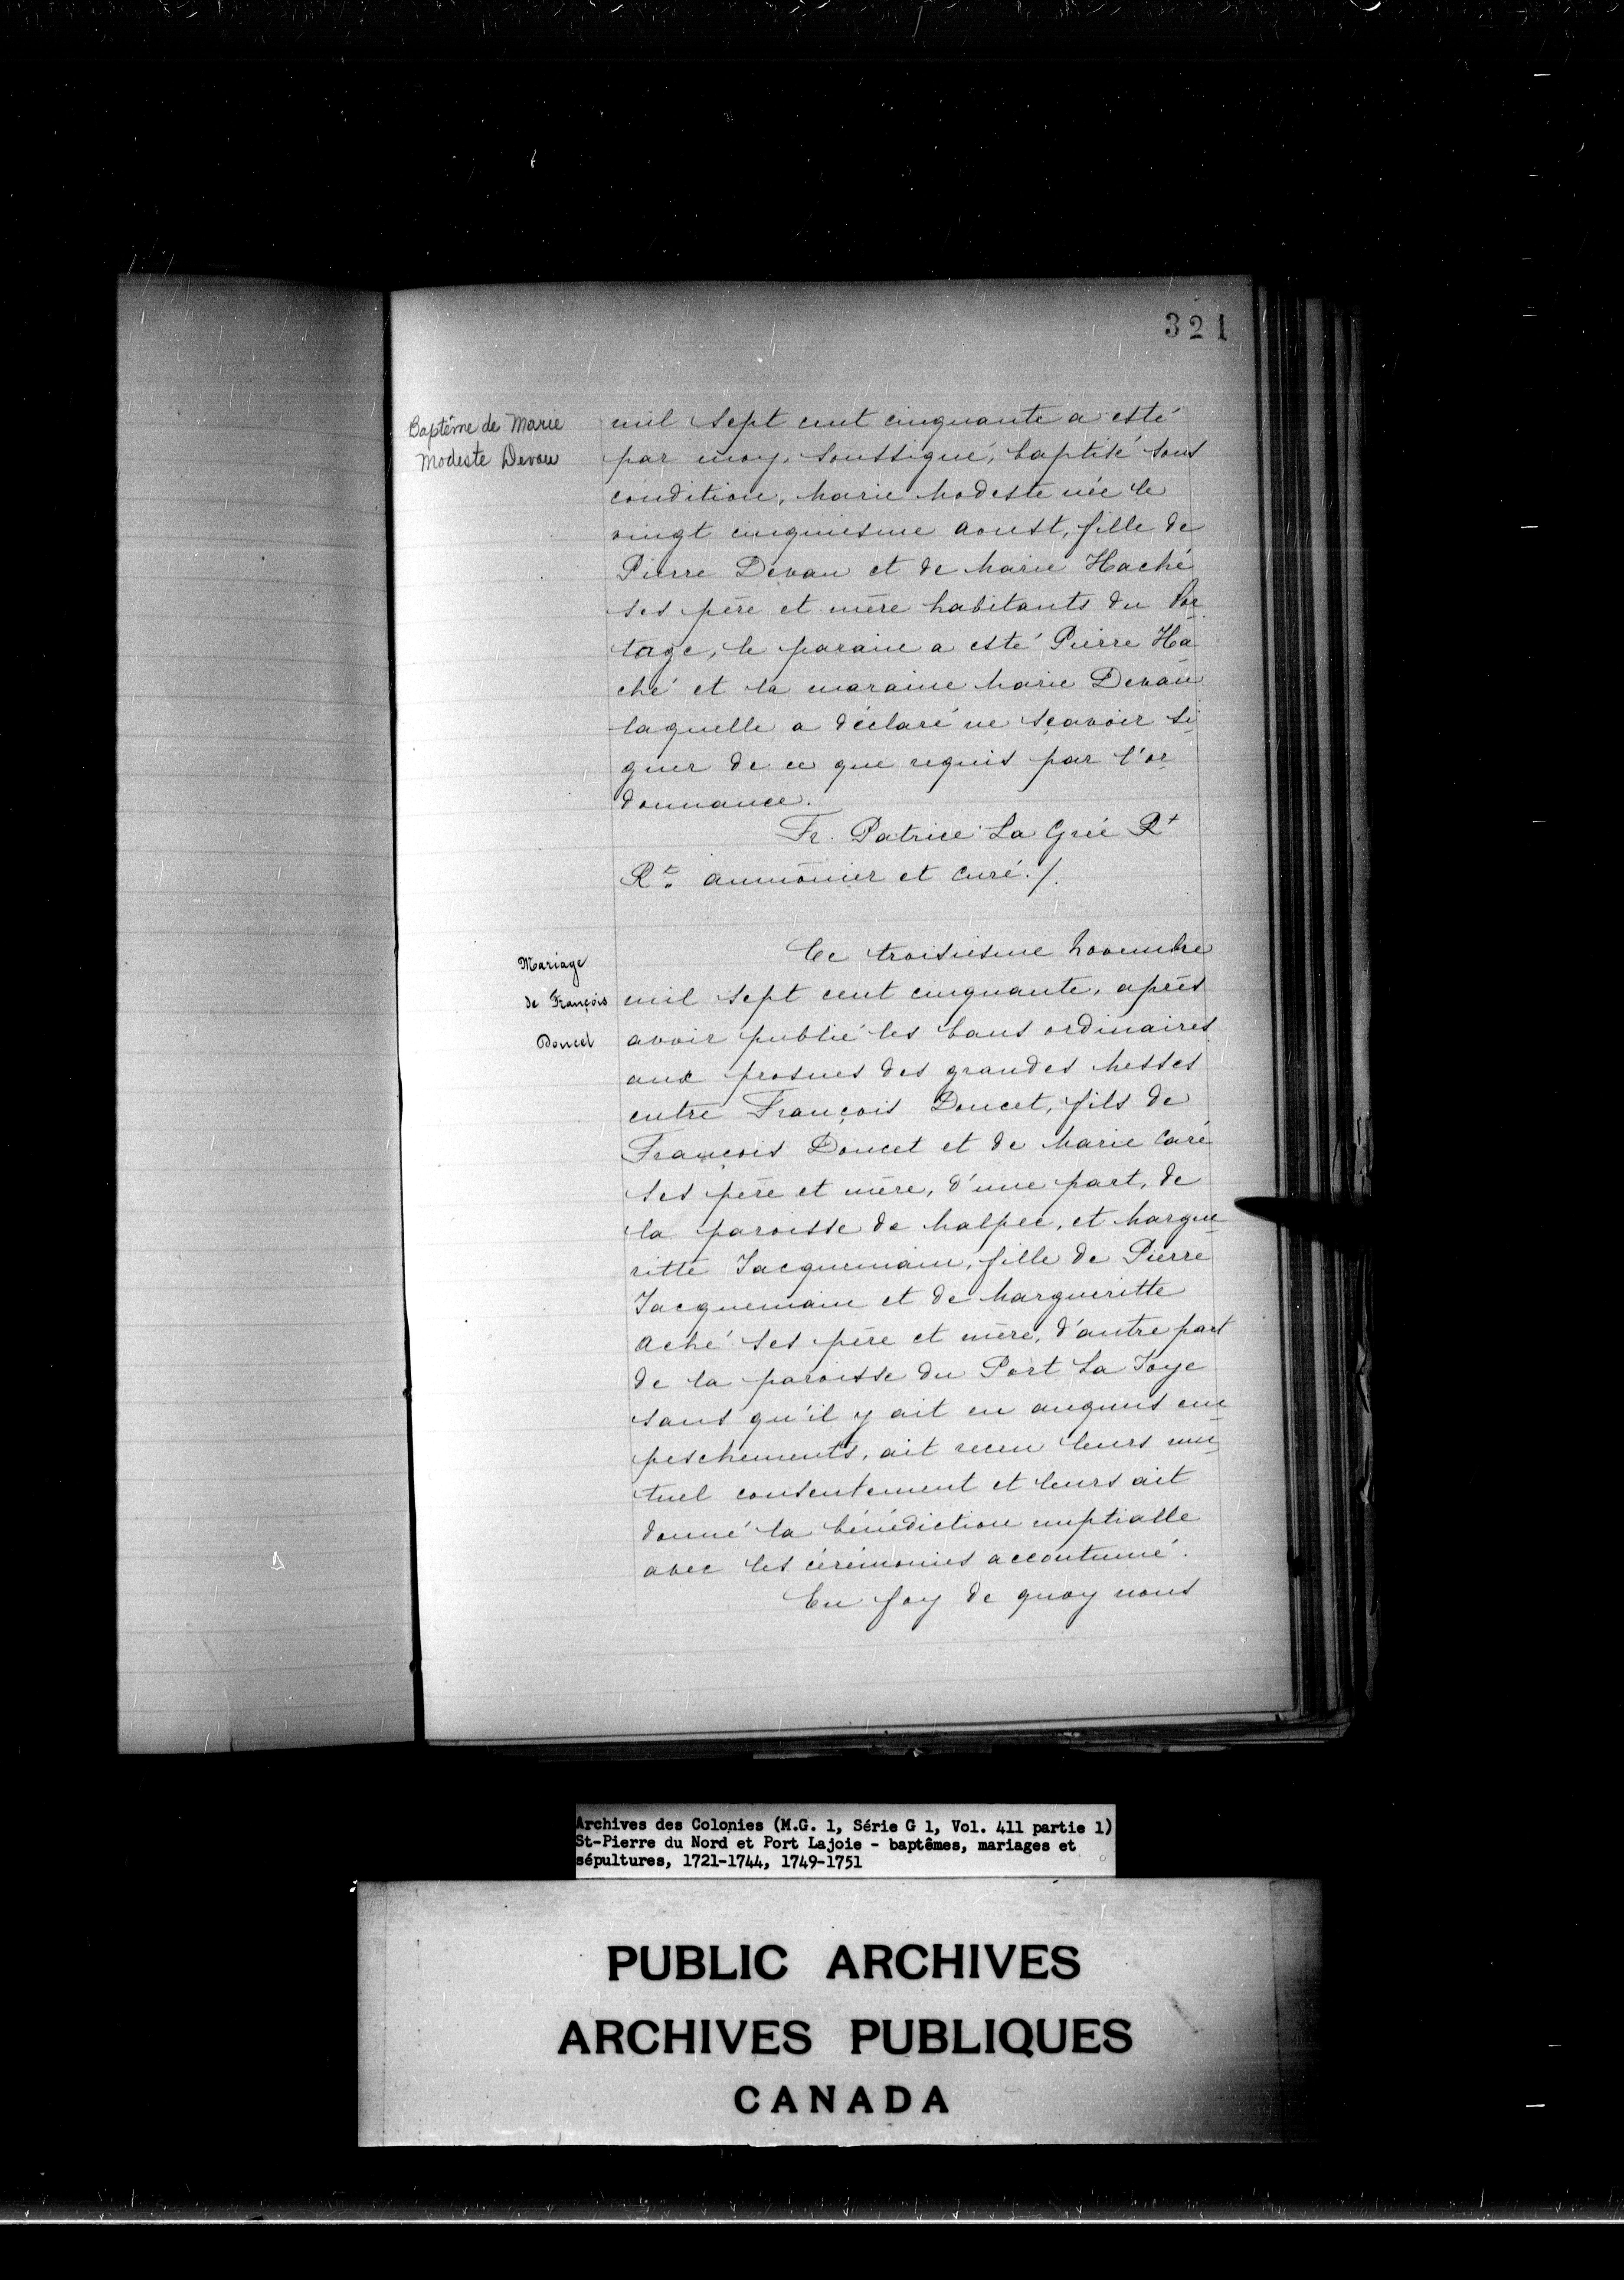 321
Baptême de Marie
Modeste Devau
mil sept cent cinquante a esté
par moy, soussigné, baptisé sous
condition, Marie Modeste née le
vingt cinquiesme Aoust, fille de
Pierre Devau et de Marie Haché
ses père et mère habitants du Por
tage, le paraine a esté Pierre Ha
ché et la maraine Marie Devau
laquelle a déclaré ne sçavoir si
gner de ce que requis par l'or
donnance.
Fr. Patrice La Grée Rt
Rt. aumônier et curé./.
Mariage
de François
Doucet
Ce troisiesme Novembre
mil sept cent cinquante, après
avoir publié les bans ordinaires
aux prosnes des grandes Messes
entre François Doucet, fils de
François Doucet et de Marie Caré
ses père et mère, d'une part, de
la paroisse de Malpec, et Margue
ritte Jacquemain, fille de Pierre
Jacquemain et de Margueritte
Aché ses père et mère, d'autre part
de la paroisse du Port La Joye
sans qu'il y ait eu auquns em
peschements, ait receu leurs mu
tuel consentement et leurs ait
donné la bénédiction nuptialle
avec les cérémonies accoutumé.
En foy de quoy nous
Archives des Colonies (M.G. 1, Série G 1, Vol. 411 partie 1)
St-Pierre du Nord et Port Lajoie - baptêmes, mariages et
sépultures, 1721-1744, 1749-1751
PUBLIC ARCHIVES
ARCHIVES PUBLIQUES
CANADA